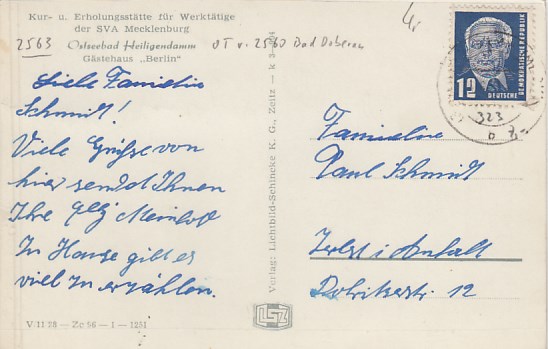 Kur- u. Erholungsstätte für Werktätige
der SVA Mecklenburg
Ostseebad Heiligendamm
Gästehaus „Berlin"
2563
OT v. 2560 Bad Doberan
Liebe Familie
Schmidt!
Viele Grüsse von
hier sendet Ihnen
Ihre
In Hause gibt es
viel zu erzählen.
V 11 28 — Zc 56 — I — 1251
Verlag: Lichtbild-Schincke K. G., Zeitz - k
LSZ
DEUTSCHE
DEMOKRATISCHE REPUBLIK
12
323
Familie
Paul Schmidt
Zerbst i Anhalt
12